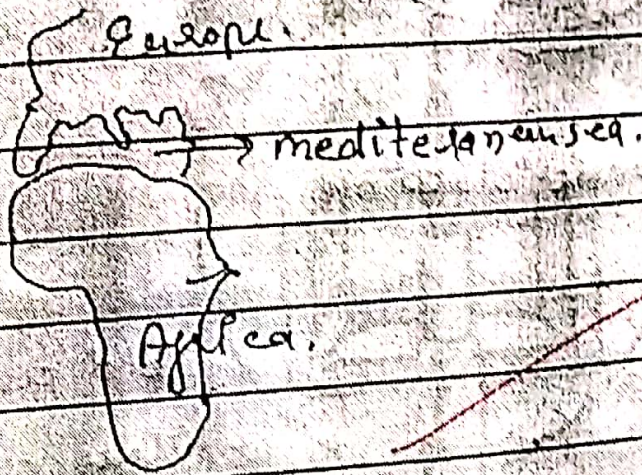 Europe.
mediteranean sea.
Africa.